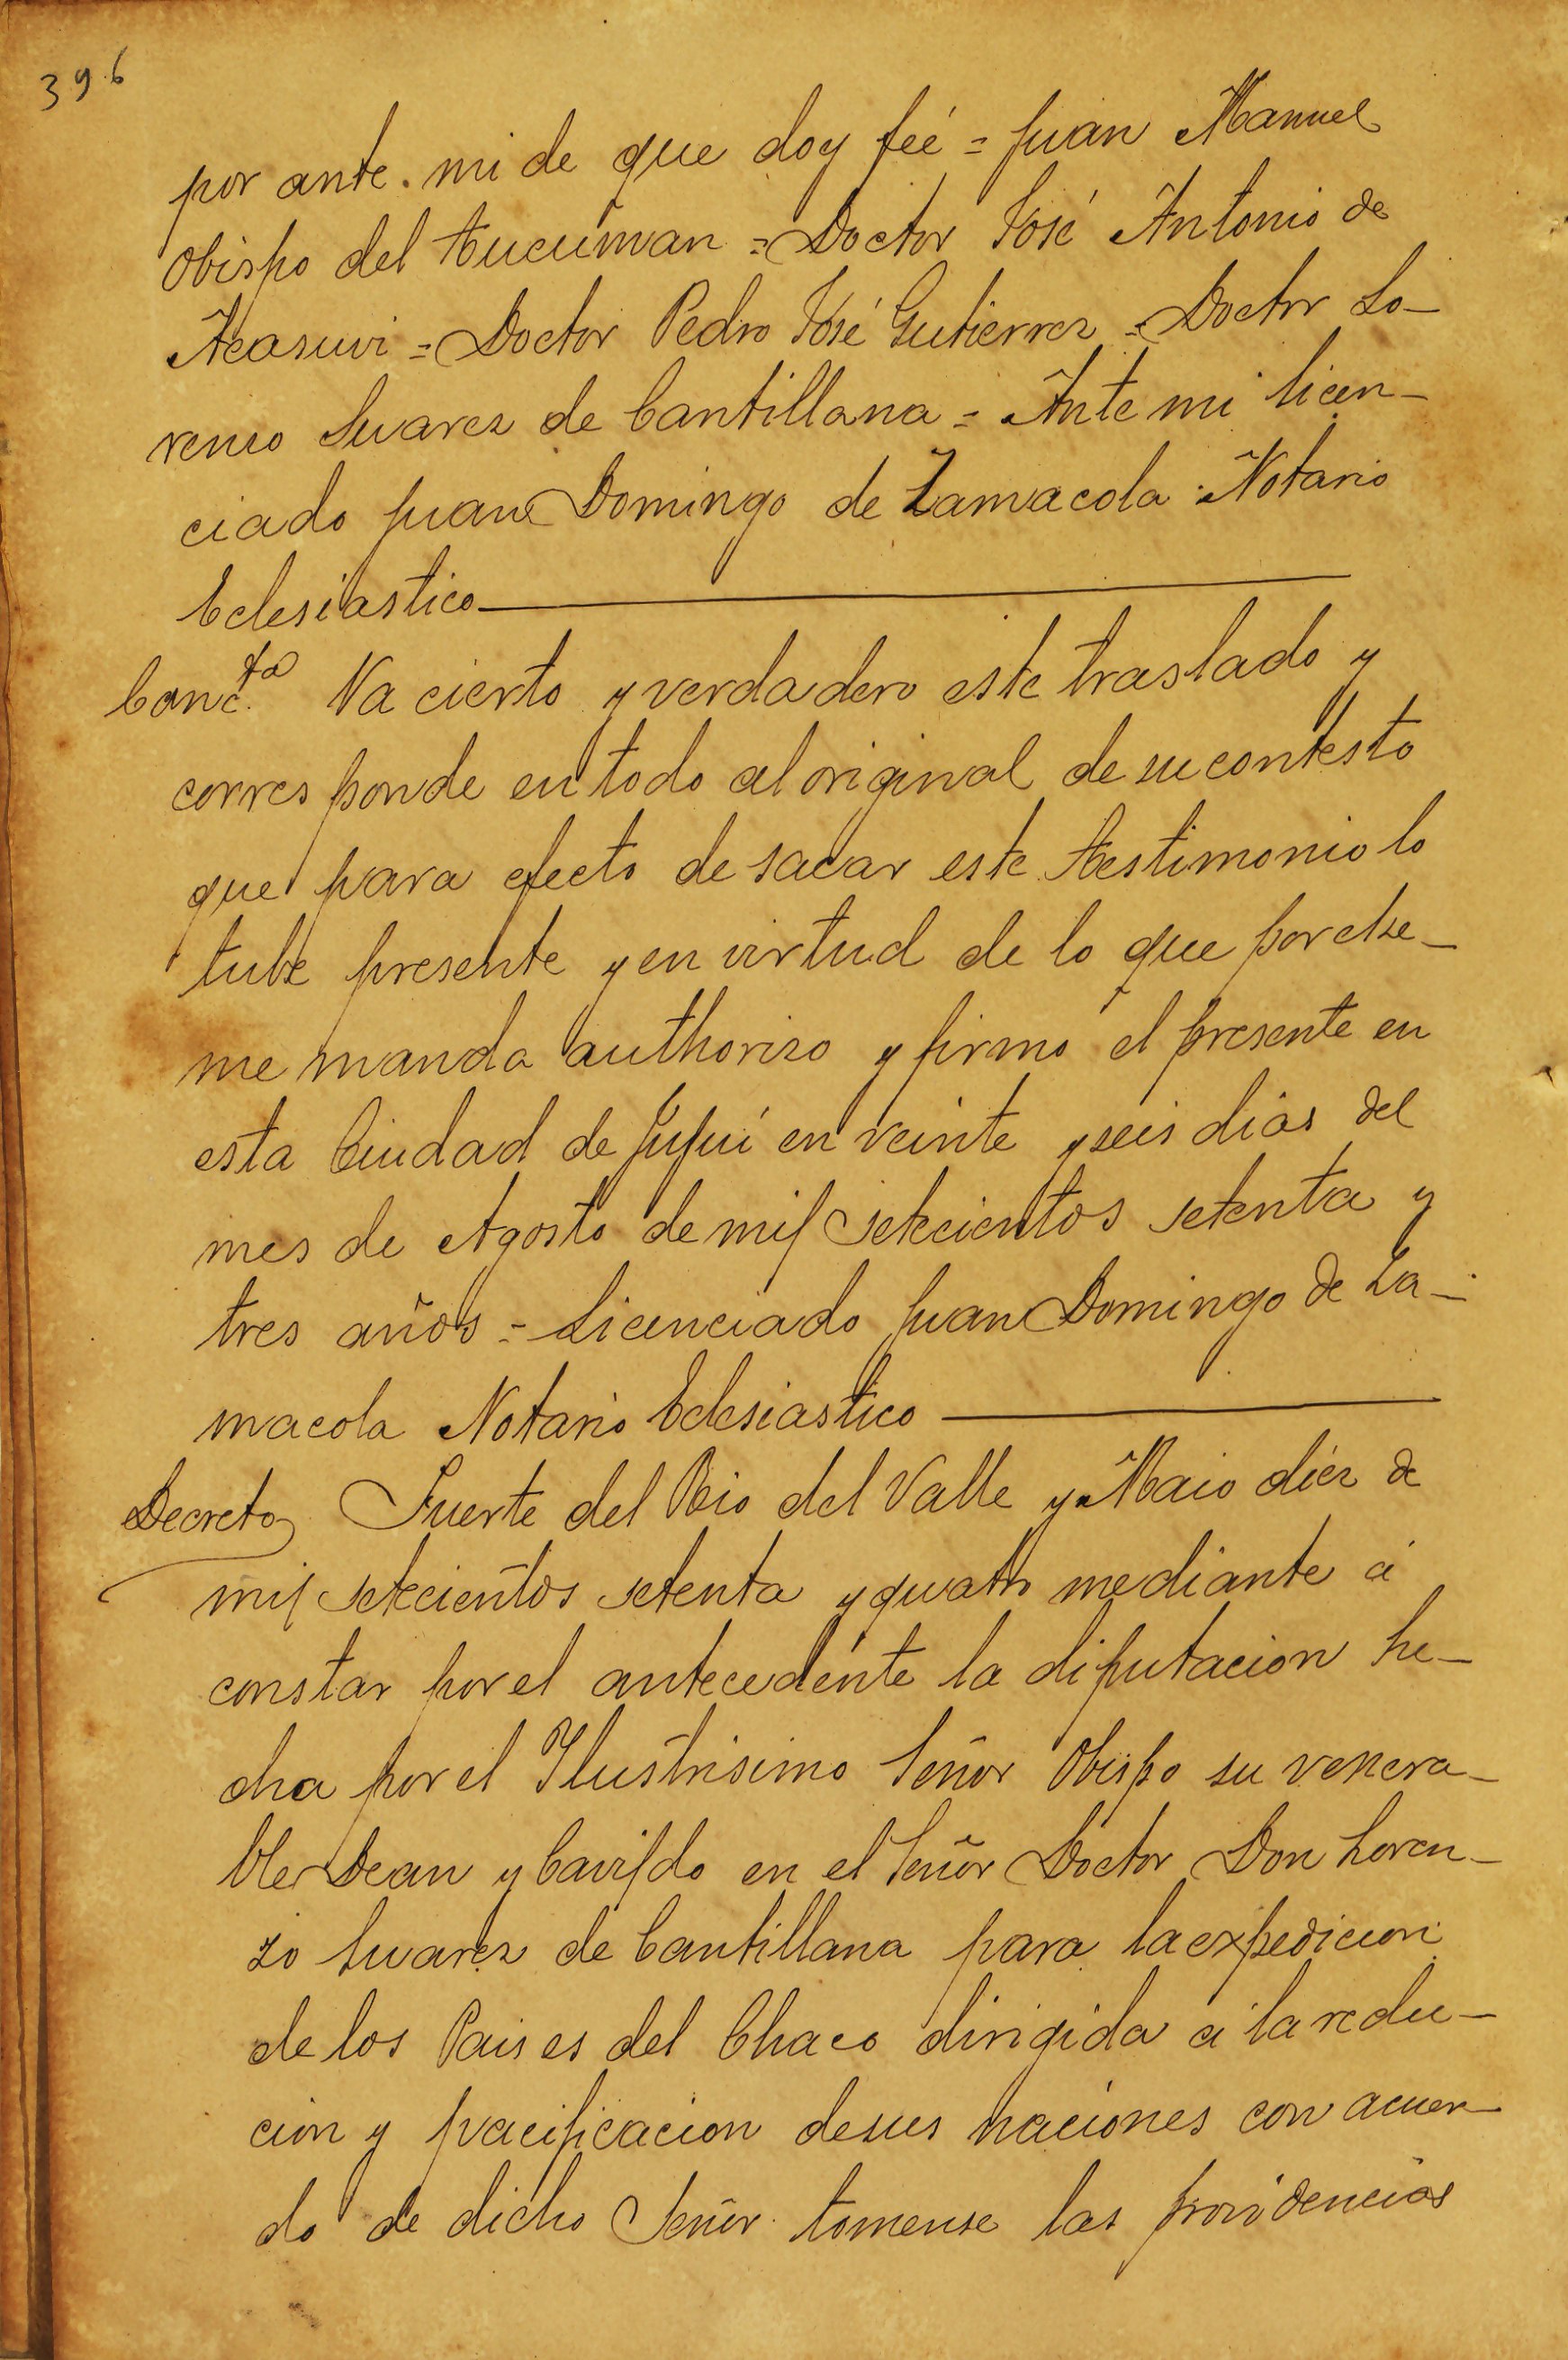 396
por ante mi de que doy feé = Juan Manuel
Obispo del Tucuman = Doctor José Antonio de
Acasuvi = Doctor Pedro José Gutierrez = Doctor Lo-
renso Suarez de Cantillana = Ante mi Licen-
ciado Juan Domingo de Zamacola Notario
Eclesiastico
Conc.ta Va cierto y verdadero este traslado y
corresponde en todo al original de su contesto
que para efecto de sacar este testimonio lo
tube presente y en virtud de lo que por else
me manda authoriso y firmo el presente en
esta Ciudad de Jujui en veinte y seis dias del
mes de Agosto de mil setecientos setenta y
tres años = Licenciado Juan Domingo de Za-
macola Notario Eclesiastico
Decreto Fuerte del Rio del Valle y Maio diez de
mil setecientos setenta y quatro mediante á
constar por el antecedente la diputacion he-
cha por el Ilustrisimo Señor Obispo su venera-
ble Dean y Cavildo en el Señor Doctor Don Loren-
zo Suarez de Cantillana para la expedicion
de los Paises del Chaco dirigida á la redu-
cion y pacificacion de sus naciones con acuer-
do de dicho Señor tomense las providencias